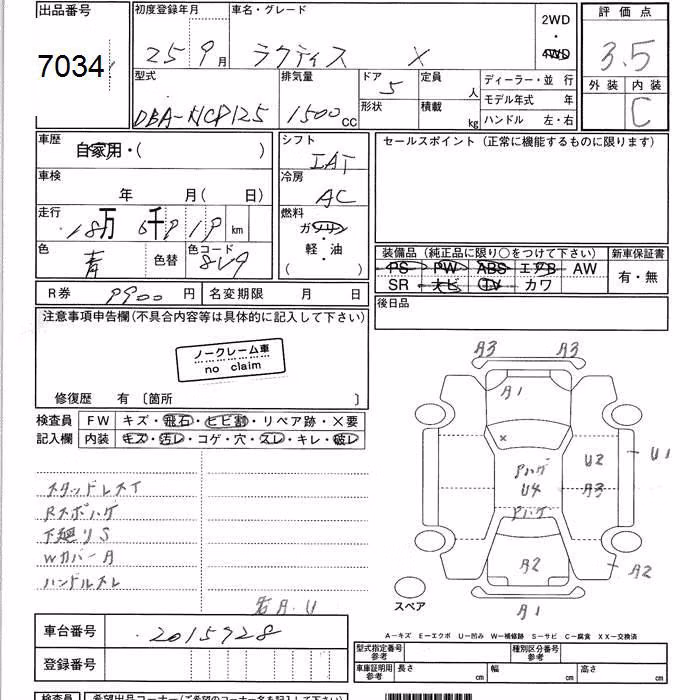 出品番号
7034
初度登録年月
25 9 月
車名・グレード
ラクティス X
2WD
・
4WD
評価点
3.5
外装 内装
C
型式
DBA-NCP125
排気量
1500 CC
ドア
5
形状
定員
人
積載
kg
ディーラー・並行
モデル年式 年
ハンドル 左・右
車歴
自家用・( )
車検
年 月( 日)
走行
18万 6千919 km
色
青
色替
色コード
8L9
シフト
IAT
冷房
AC
燃料
ガソリン
・
軽・油
( )
セールスポイント(正常に機能するものに限ります)
装備品(純正品に限り○をつけて下さい)
PS PW ABS エアB AW
SR ナビ TV カワ
新車保証書
有・無
R券 9900 円
名変期限 月 日
後日品
注意事項申告欄(不具合内容等は具体的に記入して下さい)
ノークレーム車
no claim
修復歴 有〔箇所 〕
検査員
記入欄
FW キズ・飛石・ヒビ割・リペア跡・×要
内装 キズ・汚レ・コゲ・穴・スレ・キレ・破レ
スタッドレスT
Rスポハゲ
下廻りS
WカバーA
ハンドルスレ
若A.U
A3 A3
A1
×
Pハゲ
U4
Pハゲ
U2
A3
U1
A2
A2
A1
スペア
A−キズ E−エクボ U−凹み W−補修跡 S−サビ C−腐食 XX−交換済
車台番号
2015928
登録番号
型式指定番号
参考
種別区分番号
参考
車庫証明用
参考
長さ cm
幅 cm
高さ cm
検査員
希望出品コーナー(ご希望のコーナー名を記入下さい)